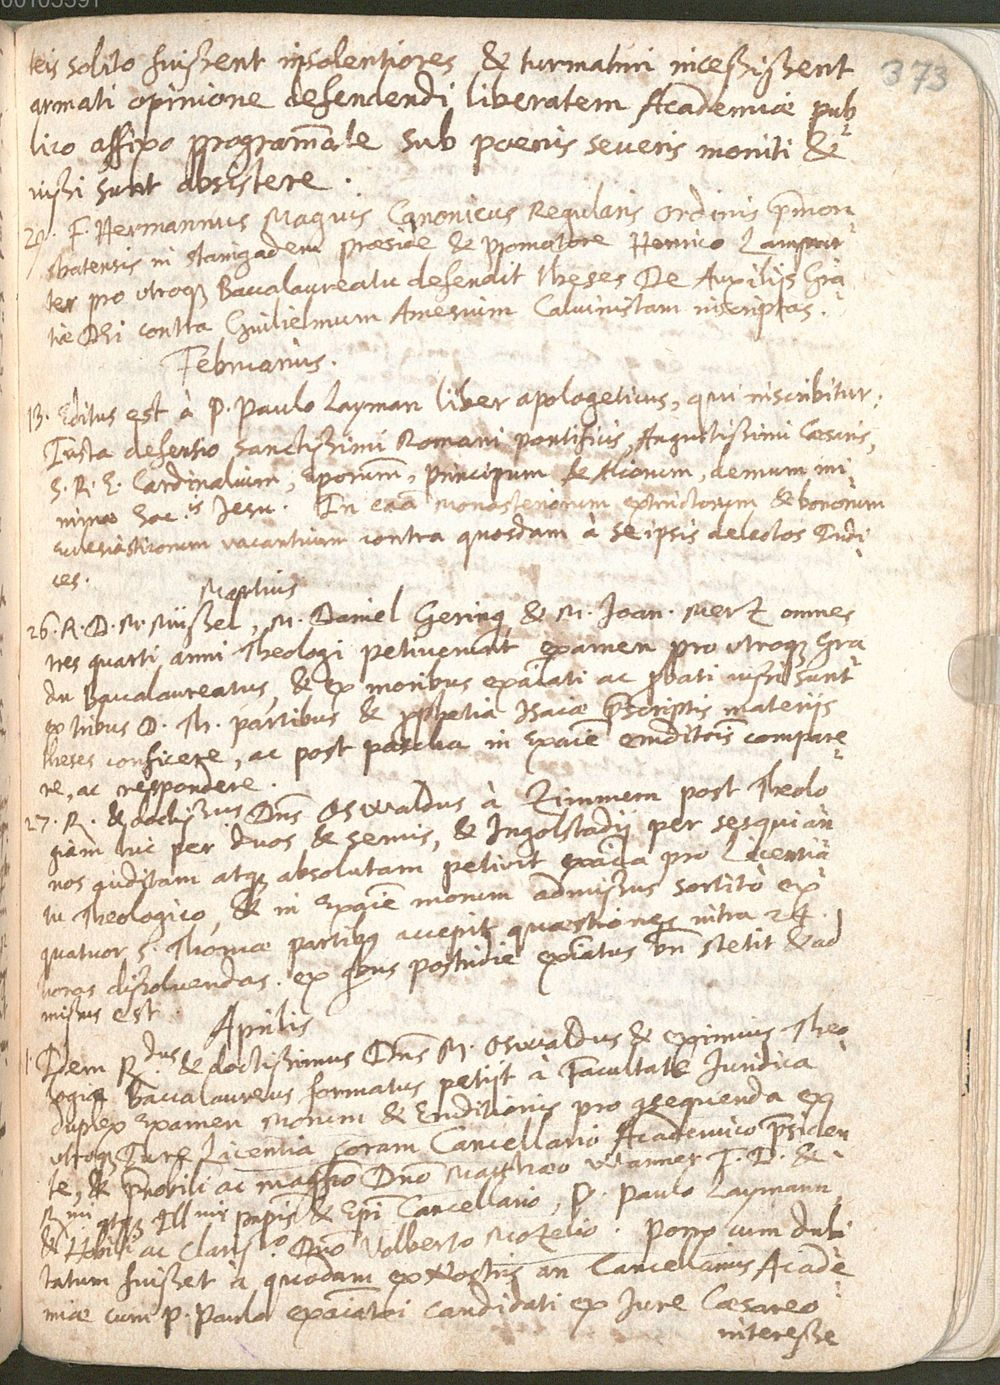 00105391
373
teis solito fuissent insolentiores & turmatim incessissent
armati opinione defendendi liberatem Academiæ pub¨
lico affixo programāte sub poenis severis moniti &
iussi sunt absistere.
F. Hermannus Maquis Canonicus Regularis Ordinis Præmon
stratensis in præside & promotore Henrico Lampar¨
ter pro utroq; Baccalaureatu defendit theses De Auxilijs Gra
tiæ Dei contra Guilielmum Amesium Calvinistam inscriptas.
Februarius.
13. Editus est à P. Paulo Layman liber apologeticus, qui inscribitur:
Iusta defensio Sanctissimi Romani pontificis, Augustissimi Cæsaris,
S. R. E. Cardinalium, Eporum, Principum & Aliorum, demum mi¨
nimæ Soc.is Jesu. In cāā monasteriorum extinctorum & bonorum
Ecclesiasticorum vacantium contra quosdam à se ipsis delectos Iudi¨
ces.
Martius
26. R. D. M. Müssel, M. Daniel Gering, & M. Joan. Merz omnes
tres quarti anni Theologi petiverunt examen pro utroq; Gra
du Baccalaureatus, & ex moribus exāīati ac ꝓbati iussi sunt
ex tribus D. Th. partibus & ꝓphetia Isaiæ p̄scriptis materijs
theses conficere, ac post pascha in Exāīe eruditōīs compare¨
re, ac respondere.
27. R. & doctissimus Dn̄s Oswaldus à Zimmern post Theolo
giam hic per duos & semis, & Ingolstadij per sesquian̄
nos auditam atq; absolutam petivit exāīa pro Licentia¨
tu Theologico, & in Exāīe morum admissus sortitò ex
quatuor S. Thomæ partibq accepit quæstiones intra 24.
horas dissolvendas. ex qbus postridie exāīatus bn̄ stetit & ad
missus est.
Aprilis
1. Idem R.dus & doctissimus Dn̄s M. Oswaldus & eximius Theo¨
logiæ Baccalaureus formatus petijt à Facultate Juridica
duplex Examen Morum & Eruditionis pro assequenda ex
utroq; Iure Licentia coram Cancellario Academico p̄siden
te, & p̄nobili ac magn̄co Dn̄o Matthæo Wanner I. D. &
R.mi atq; Ill.mi pn̄pis & Epī Cancellario, P. Paulo Laymann
& Nobili ac Claris.o Dn̄o Volberto Mozelio. Porro cum dubi
tatum fuisset à quodam ex Nostris an Cancellarius Acadē¨
miæ cum P. Paulo exāīatōi candidati ex Jure Cæsareo
interesse